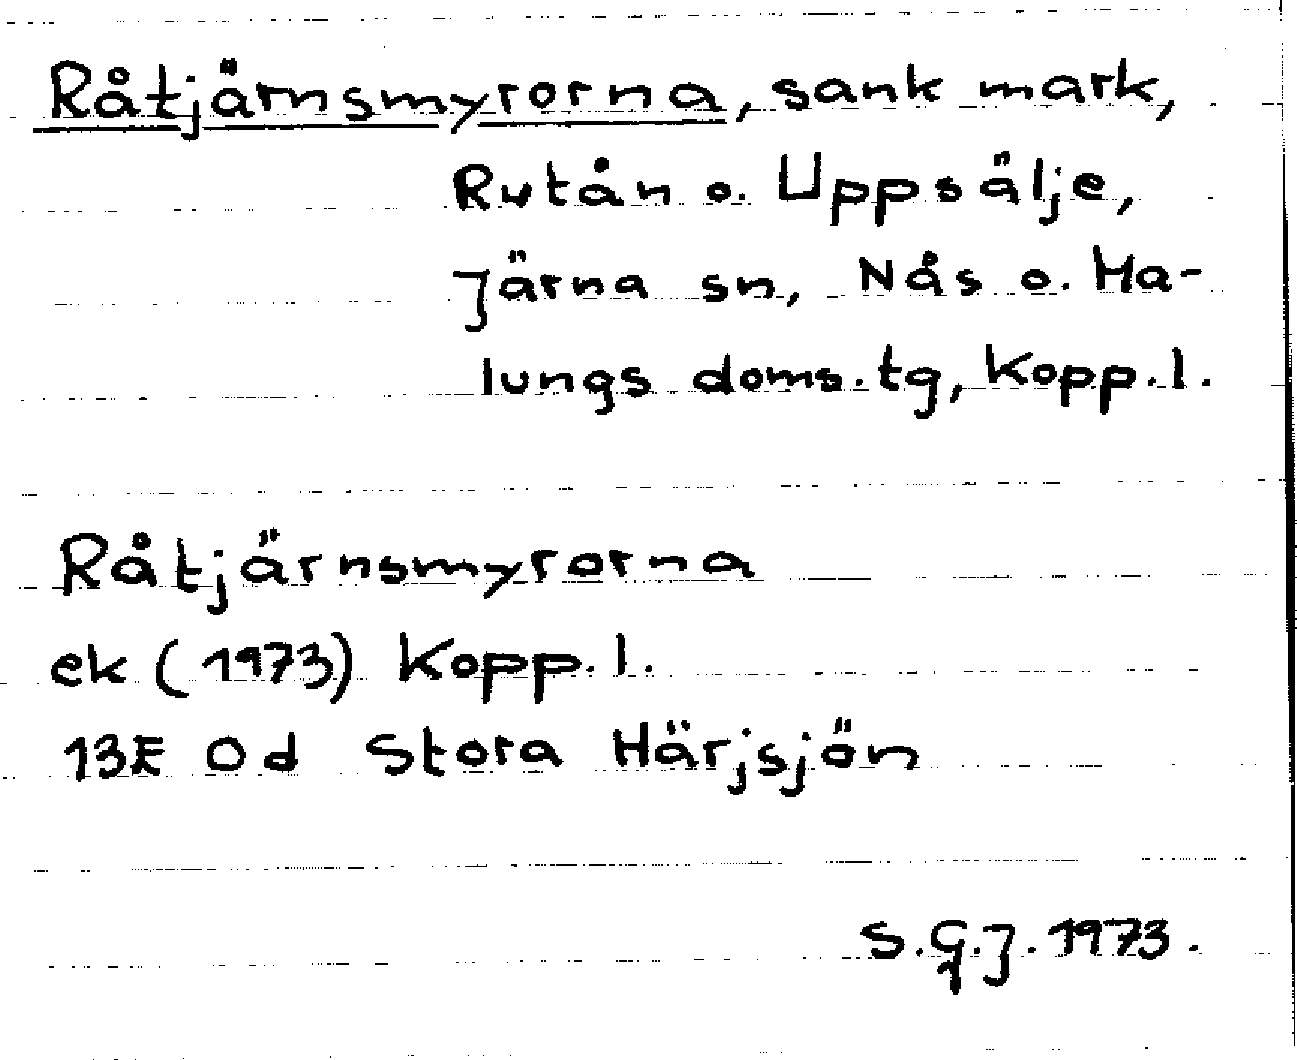 Råtjärnsmyrorna, sank mark,
Rutån o. Uppsälje,
Järna sn, Nås o. Ma-
lungs doms.tg, Kopp.l.
Råtjärnsmyrorna
ek (1973) Kopp.l.
13E 0d Stora Härjsjön
S.G.J. 1973.